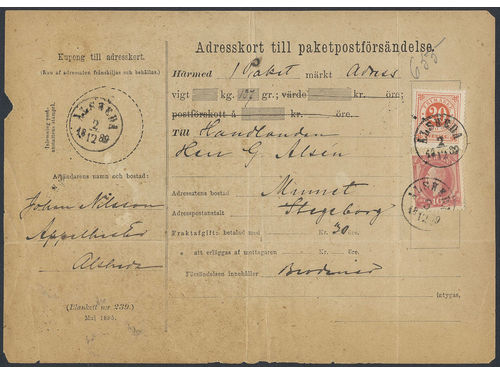 Kupong till adresskort.
(Kan af adressaten frånskiljas och behållas.)
Inlemnings-postanstaltens stämpel.
ALSHEDA
2
12
1889
Afsändarens namn och bostad:
Johan Nilsson
Alsheda
(Blankett n:r 239.)
Maj 1885.
Adresskort till paketpostförsändelse.
Härmed 1 Paket märkt Adress
vigt kg. 137 gr.; värde kr. öre;
postförskott å kr. öre.
Till Handlanden
Herr G Alsén
Adressatens bostad Munnet
Adresspostanstalt Stegeborg
Fraktafgift: betalad med Kr. 30 öre.
„ att erläggas af mottagaren Kr. öre.
Försändelsen innehåller
intygas,
635
20
ALSHEDA
2
12
1889
ALSHEDA
2
12
1889